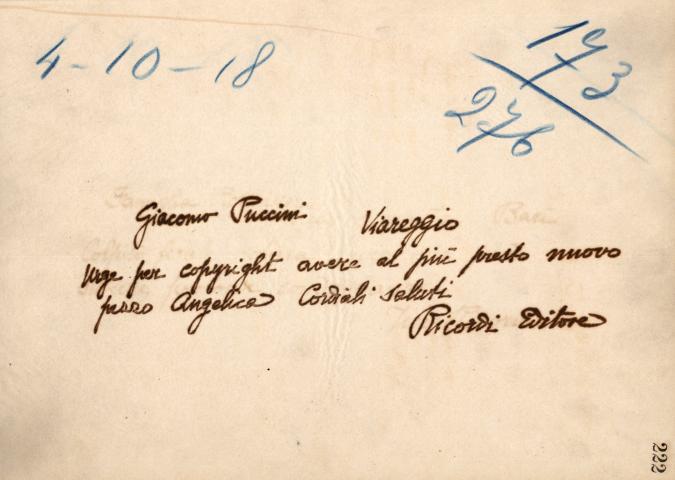 4-10-18
173
276
Giacomo Puccini Viareggio
Urge per copyright avere al più presto nuovo
pezzo Angelica Cordiali saluti
Ricordi Editore
222